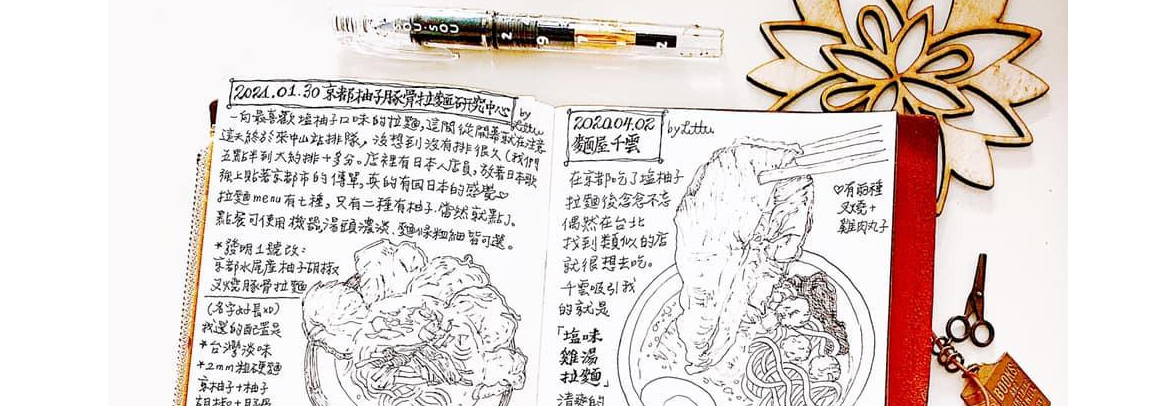 SOU·SOU
2021.01.30京都柚子豚骨拉麵研究中心
by Lottu
一向最喜歡塩柚子口味的拉麵,這間從開幕就在注意
這天終於來中山站排隊,沒想到沒有排很久(我們
五點半到大約排十多分。店裡有日本人店員,放著日本歌
牆上貼著京都市的傳單,真的有回日本的感覺♡
拉麵menu有七種,只有二種有柚子.當然就點了
點餐可使用機器湯頭濃淡.麵條粗細皆可選。
*發明1號改:
京都水尾産柚子胡椒
叉燒豚骨拉麵
(名字好長XD)
我選的配置是
*台灣淡味
*2mm粗硬麵
京柚子+柚子
胡椒+豚骨
2020.04.02
麵屋千雲
by Lottu
在京都吃了塩柚子
拉麵後念念不忘
偶然在台北
找到類似的店
就很想去吃。
千雲吸引我
的就是
「塩味
雞湯
拉麵」
清爽的
♡有兩種
叉燒+
雞肉丸子
BOOKS